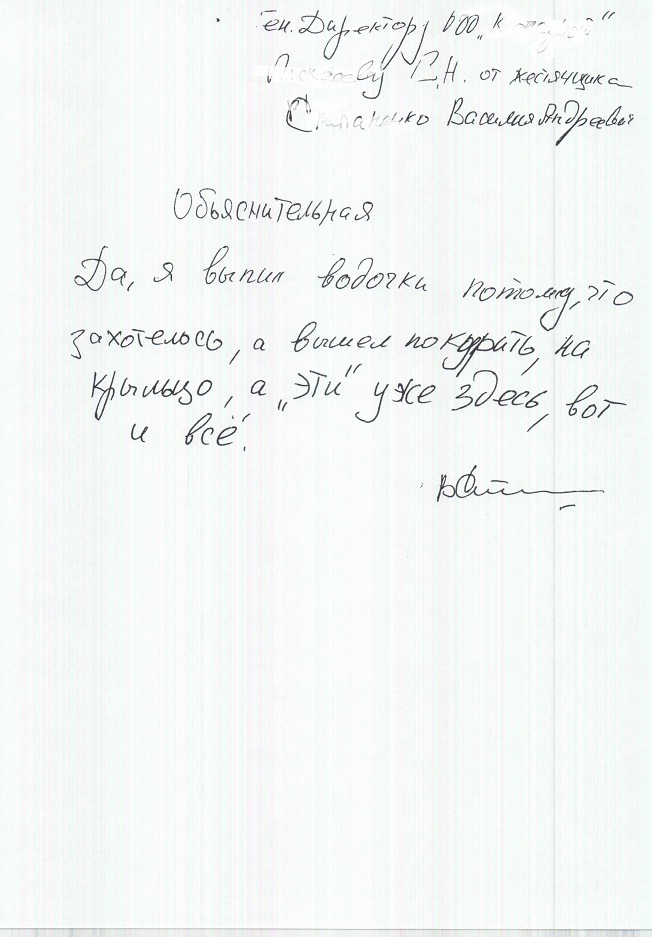 Ген. Директору ООО
Г.Н. от жестянщика
Василия Андреевич
Объяснительная
Да, я выпил водочки потому, что
захотелось, а вышел покурить, на
крыльцо, а „эти“ уже здесь, вот
и всё.